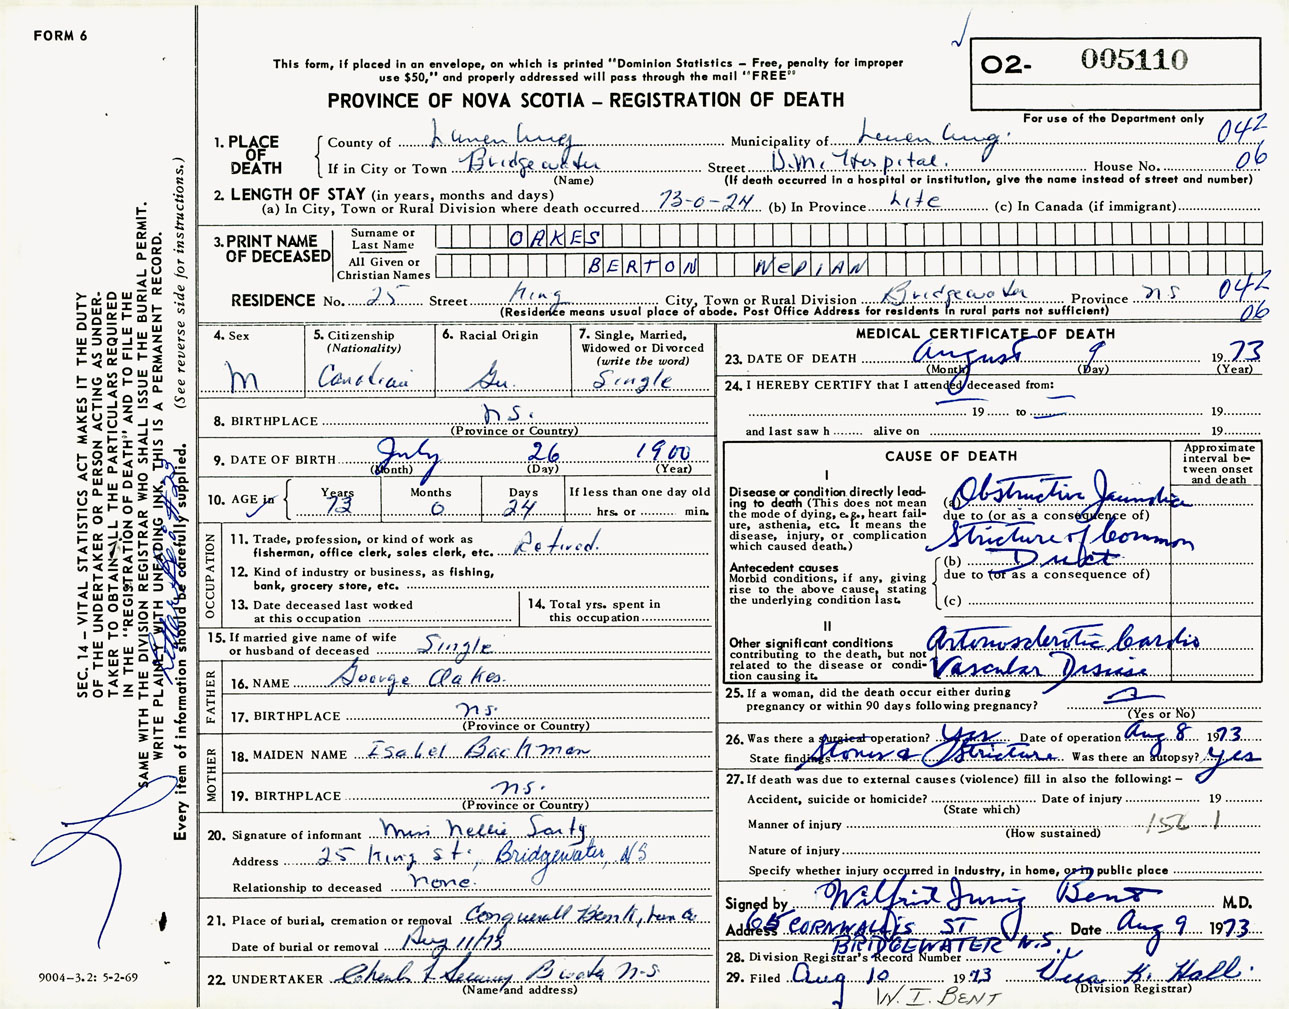 FORM 6
This form, if placed in an envelope, on which is printed "Dominion Statistics – Free, penalty for improper
use $50," and properly addressed will pass through the mail "FREE"
PROVINCE OF NOVA SCOTIA – REGISTRATION OF DEATH
O2- 005110
For use of the Department only
042
06
1. PLACE OF DEATH
County of Lunenburg Municipality of Lunenburg.
If in City or Town Bridgewater Street D.M. Hospital. House No.
(Name) (If death occurred in a hospital or institution, give the name instead of street and number)
2. LENGTH OF STAY (in years, months and days)
(a) In City, Town or Rural Division where death occurred 73-0-24 (b) In Province Life (c) In Canada (if immigrant)
3. PRINT NAME OF DECEASED
Surname or Last Name OAKES
All Given or Christian Names BERTON NEDIAN
RESIDENCE No. 25 Street King City, Town or Rural Division Bridgewater Province NS 042
(Residence means usual place of abode. Post Office Address for residents in rural parts not sufficient) 06
4. Sex
M
5. Citizenship
(Nationality)
Canadian
6. Racial Origin
Ger.
7. Single, Married,
Widowed or Divorced
(write the word)
Single
8. BIRTHPLACE N.S.
(Province or Country)
9. DATE OF BIRTH July 26 1900
(Month) (Day) (Year)
10. AGE in Years Months Days If less than one day old
73 0 24 hrs. or min.
OCCUPATION
11. Trade, profession, or kind of work as
fisherman, office clerk, sales clerk, etc. Retired.
12. Kind of industry or business, as fishing,
bank, grocery store, etc.
13. Date deceased last worked
at this occupation
14. Total yrs. spent in
this occupation
15. If married give name of wife
or husband of deceased Single
FATHER
16. NAME George Oakes
17. BIRTHPLACE N.S.
(Province or Country)
MOTHER
18. MAIDEN NAME Isabel Backman
19. BIRTHPLACE N.S.
(Province or Country)
20. Signature of informant Miss Nellie Sarty
Address 25 King St., Bridgewater, NS
Relationship to deceased None.
21. Place of burial, cremation or removal Conquerall Bank, Lun Co
Date of burial or removal Aug 11/73
22. UNDERTAKER
(Name and address)
MEDICAL CERTIFICATE OF DEATH
23. DATE OF DEATH August 9 1973
(Month) (Day) (Year)
24. I HEREBY CERTIFY that I attended deceased from:
19 to 19
and last saw h alive on 19
CAUSE OF DEATH
Approximate
interval be-
tween onset
and death
I
Disease or condition directly lead-
ing to death (This does not mean
the mode of dying, e.g., heart fail-
ure, asthenia, etc. It means the
disease, injury, or complication
which caused death.)
(a) Obstructive Jaundice
due to (or as a consequence of)
Stricture of Common
(b) Duct
due to (or as a consequence of)
(c)
Antecedent causes
Morbid conditions, if any, giving
rise to the above cause, stating
the underlying condition last.
II
Other significant conditions
contributing to the death, but not
related to the disease or condi-
tion causing it.
Arteriosclerotic Cardio
Vascular Disease
25. If a woman, did the death occur either during
pregnancy or within 90 days following pregnancy?
(Yes or No)
26. Was there a surgical operation? Yes Date of operation Aug 8 1973
State findings Stones & Stricture Was there an autopsy? Yes
27. If death was due to external causes (violence) fill in also the following: –
Accident, suicide or homicide? Date of injury 19
(State which)
Manner of injury 156 1
(How sustained)
Nature of injury
Specify whether injury occurred in Industry, in home, or in public place
Signed by Wilfrid Irving Bent M.D.
Address 65 CORNWALLIS ST Date Aug 9 1973
BRIDGEWATER N.S.
28. Division Registrar's Record Number
29. Filed Aug 10 1973 Vera K. Hall.
(Division Registrar)
W. I. BENT
SEC. 14 – VITAL STATISTICS ACT MAKES IT THE DUTY
OF THE UNDERTAKER OR PERSON ACTING AS UNDER-
TAKER TO OBTAIN ALL THE PARTICULARS REQUIRED
IN THE "REGISTRATION OF DEATH" AND TO FILE THE
SAME WITH THE DIVISION REGISTRAR WHO SHALL ISSUE THE BURIAL PERMIT.
WRITE PLAINLY WITH UNFADING INK, THIS IS A PERMANENT RECORD.
Every item of information should be carefully supplied. (See reverse side for instructions.)
9004-3.2: 5-2-69